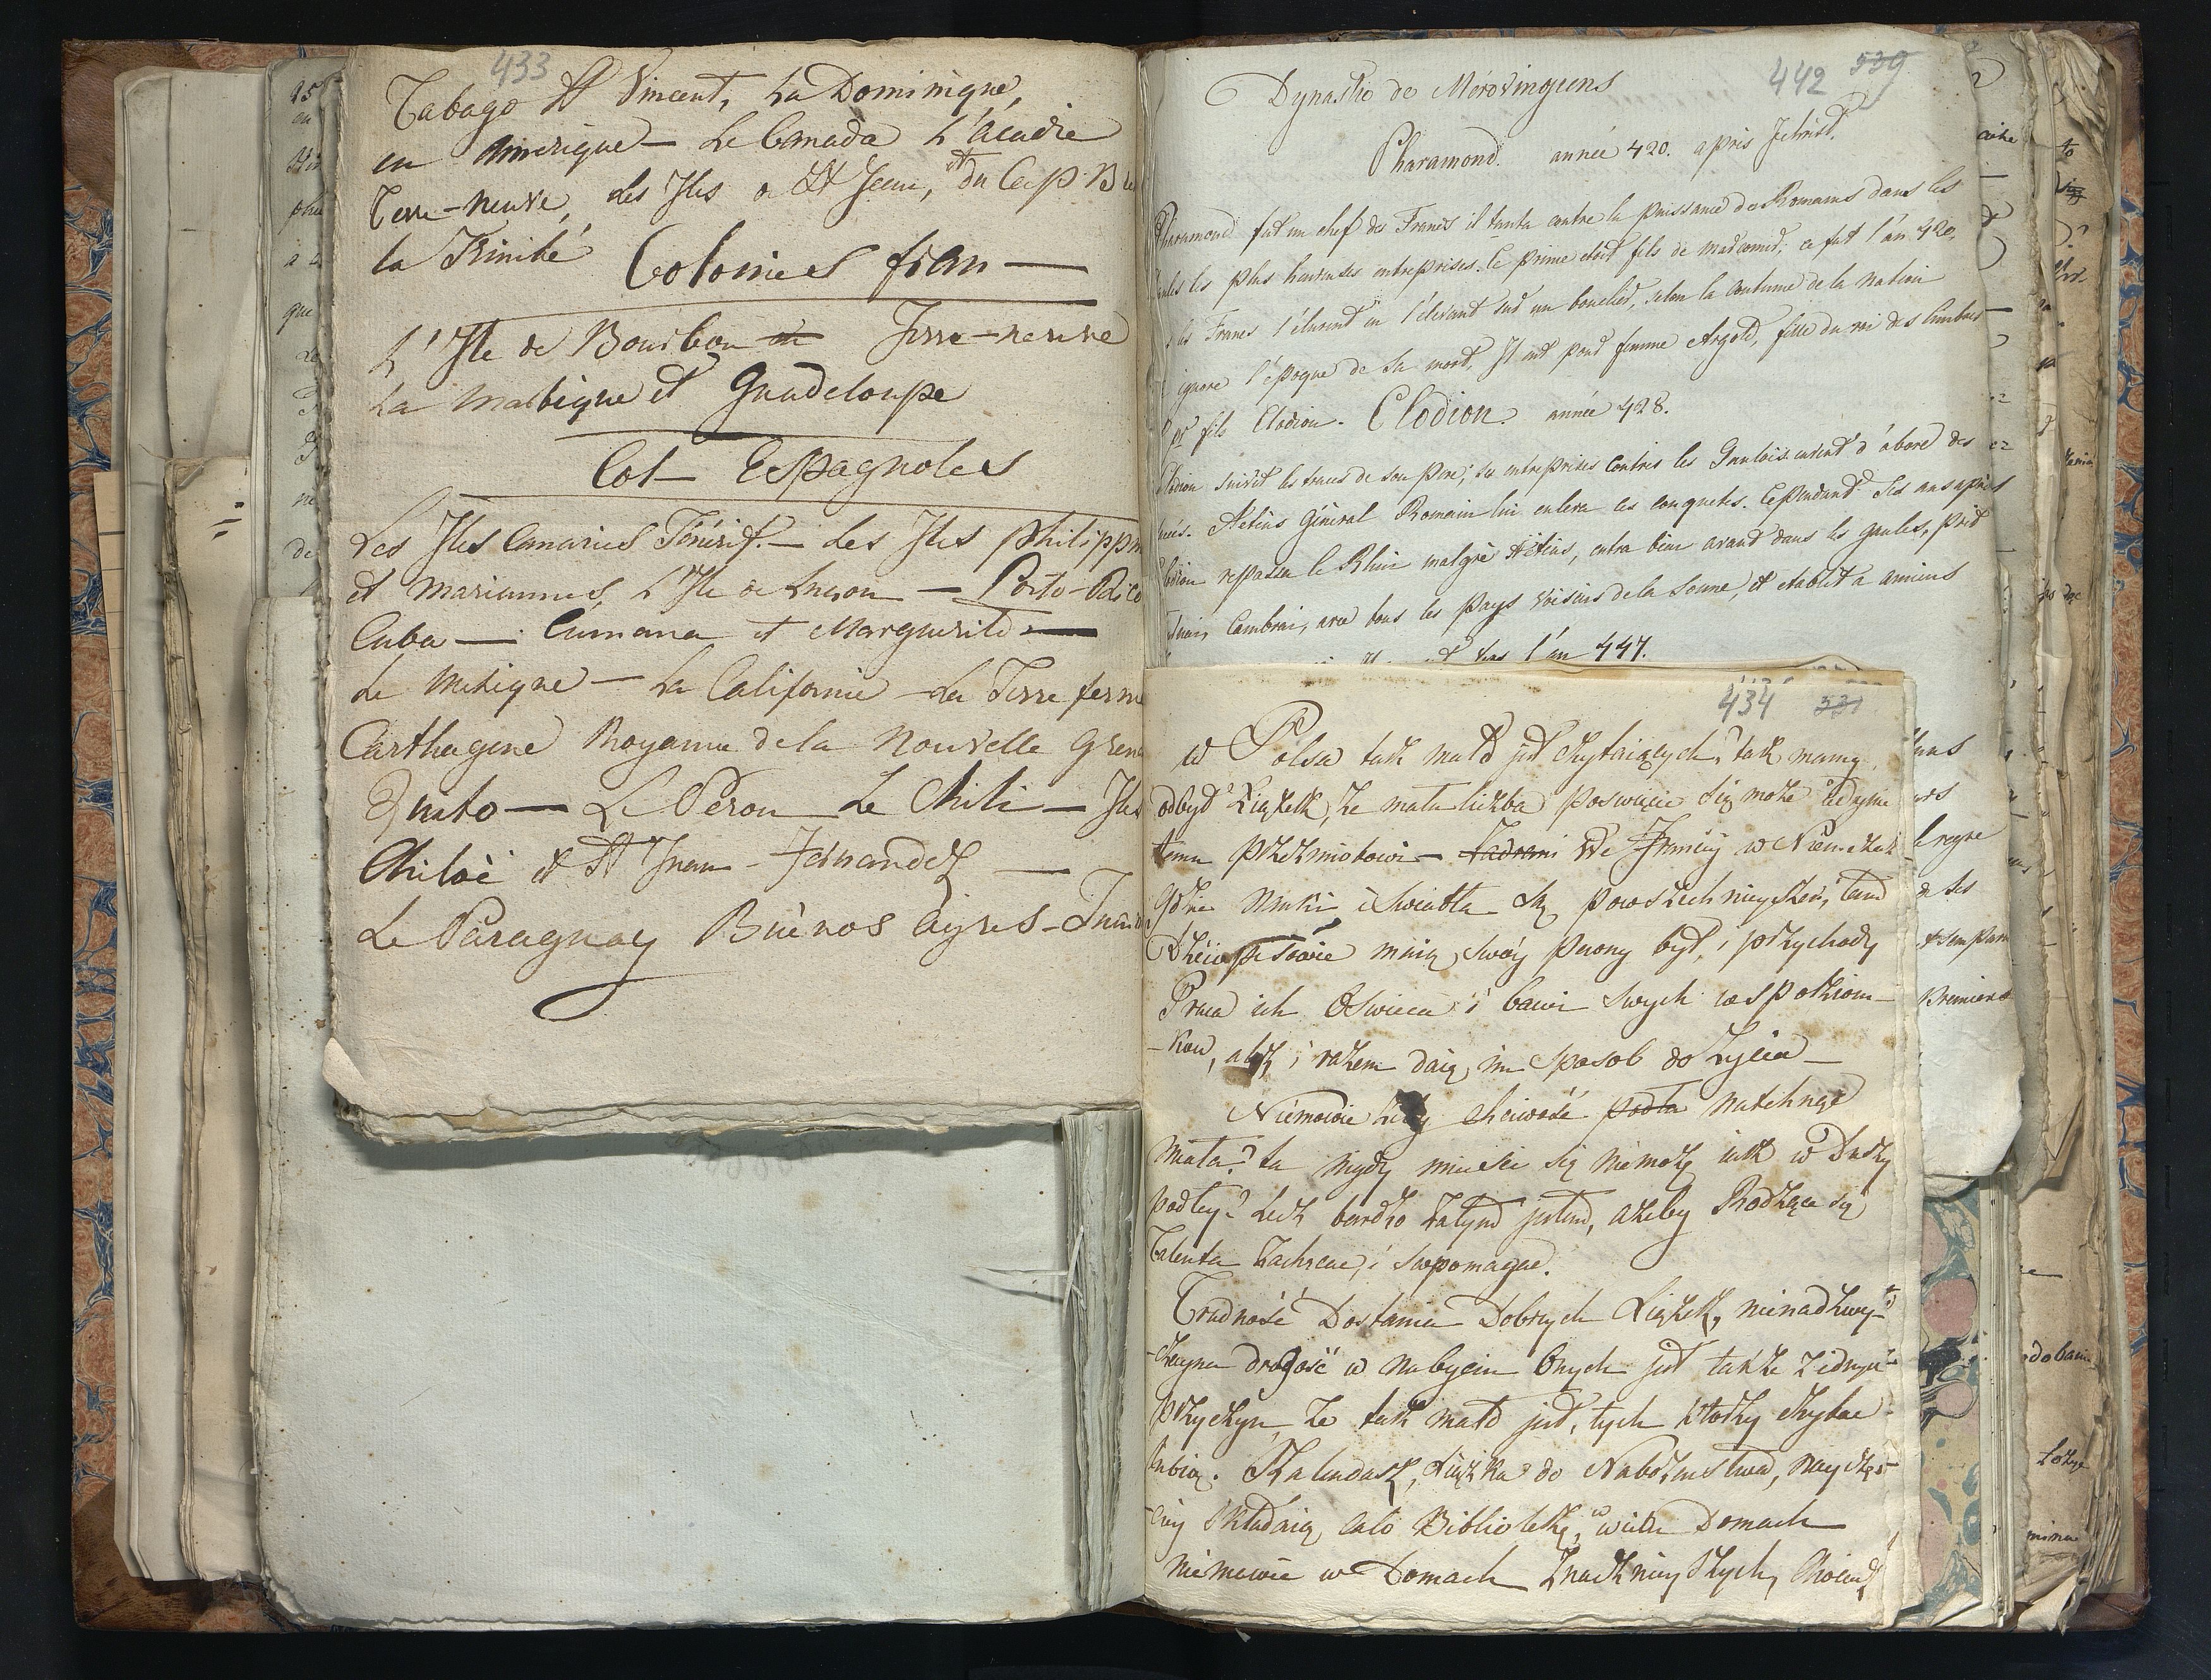 433
Tabago St Vincent, La Dominique,
en Amerique — Le Canada L'acadie
Terre-neuve, les Iles de St Jean, et du Cap B
la Trinité
Colonies fran —
L'Ile de Bourbon Terre-neuve
La Martinique et Guadeloupe
Col — Espagnoles
Les Iles Canaries Ténérif. — Les Iles philippin
et Mariannes, L'Ile de Luçon — Porto-Rico
Cuba — Cumana et Marguerite —
Le Mexique — La Californie — La Terre ferme
Carthagene Royaume de la Nouvelle Gren
Quito — Le Perou Le Chili — Iles
Chiloè et St Juan - Fernandez —
Le Paraguay Buènos Ayres -
442 539
Dynastie de Mérovingiens
Pharamond. année 420. après J.christ.
Pharamond fut un chef des Francs il tenta contre la puissance des Romains dans les
Gaules les plus heureuses entreprises. Ce prince etoit fils de Marcomed; ce fut l'an 420,
les Francs l'élurent en l'élevant sur un bouclier, selon la coutume de la nation
ignore l'époque de sa mort, Il eut pour femme Argote, fille du roi des Cimbres
pr fils Clodion. Clodion. année 428.
Clodion suivit les traces de son pere; ses entreprises contres les Gaulois eurent d'abord des
Aétius Général Romain lui enleva ces conquetes. Cependant six ans après
Clodion repassa le Rhin malgré Aétius, entra bien avant dans les gaules, prit
Cambrai, avec tous les pays voisins de la Somme, et etablit a amiens
l'an 447.
434 531
w Polsce tak mało jest Czytaiących, tak marny
odbyt Xiążek, że mała liczba poswięcic się może iedynie
temu przedmiotowi — We Francÿ w Niemczech
gdzie Nauki i Swiatła są powszechnieysze, tam
Dzieiopisowie maią swóy pewny byt, i przychody
Praca ich Oswieca i bawi swych wspołziom-
-kow, ależ i razem daią im sposob do Zycia —
Niemowie żeby chciwość podła natchnąć
miała? ta nigdy mieścić się niemoże iak w Duszy
podłey? Lecz bardzo Załym jestem, ażeby Rodzące się
Talenta Zachęcac, i wspomagac.
Trudność Dostania Dobrych Xiążek, nienadzwy-
-czayna drogość w nabyciu Onych jest także z iednych
przyczyn, że tak mało jest, tych ktorzy czytac
lubią. Kalendarz, Xiążka do Nabożenstwa, nayczęs-
-ciey składaią całą Bibliotekę, w wielu Domach
niemowie w Domach Znacznieyszych,